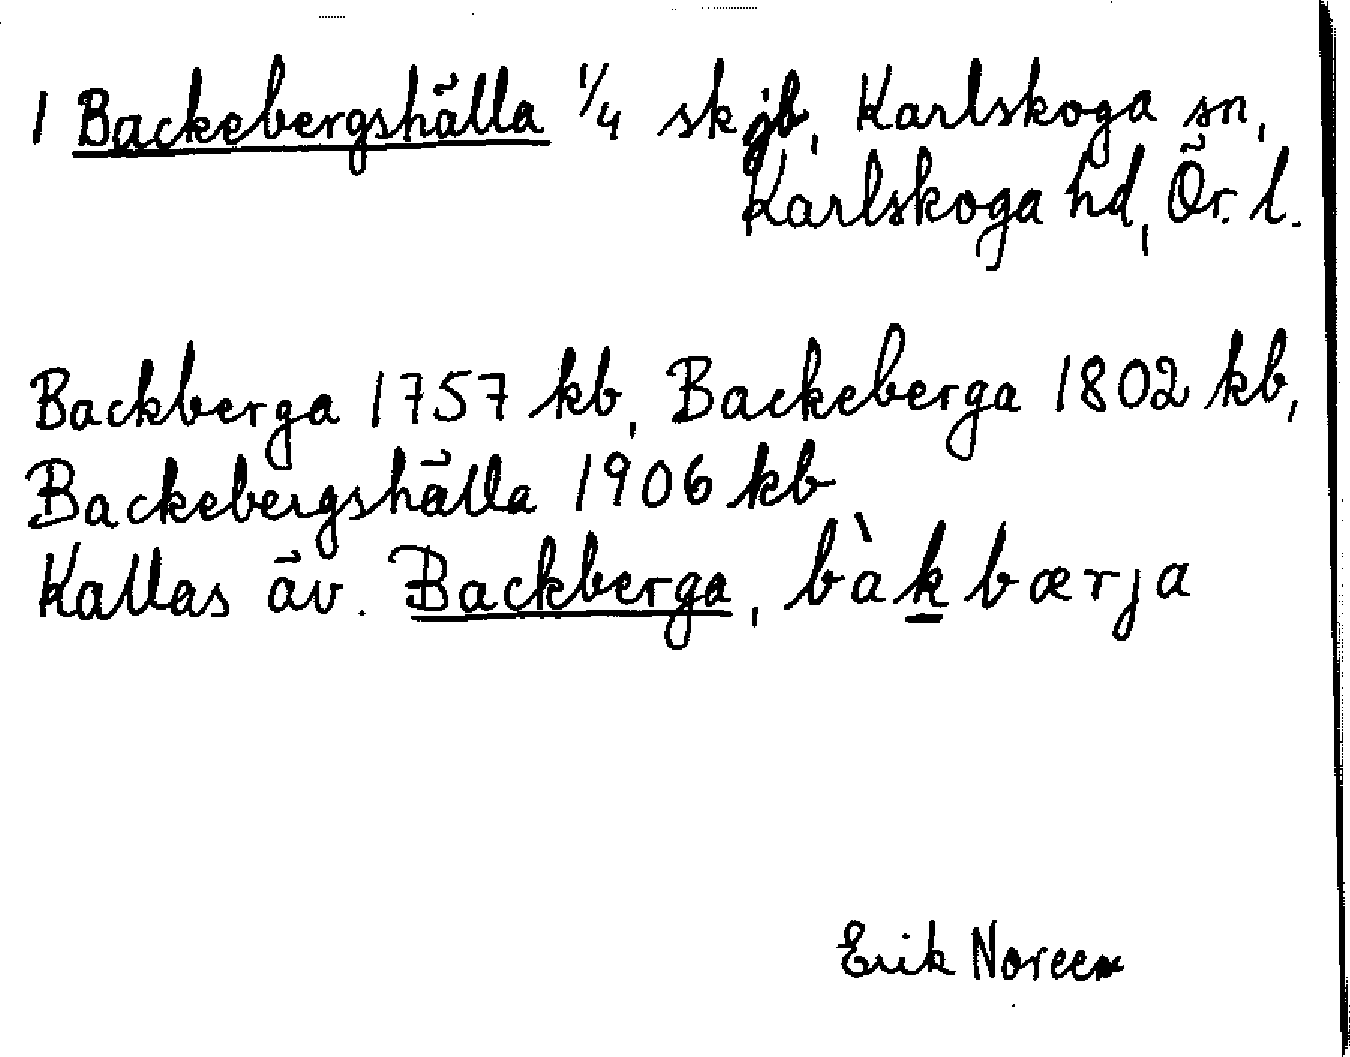 1 Backebergshälla 1/4 skjb, Karlskoga sn,
Karlskoga hd, Ör. l.
Backberga 1757 kb, Backeberga 1802 kb,
Backebergshälla 1906 kb
Kallas äv. Backberga, bàkbærja
Erik Noreen